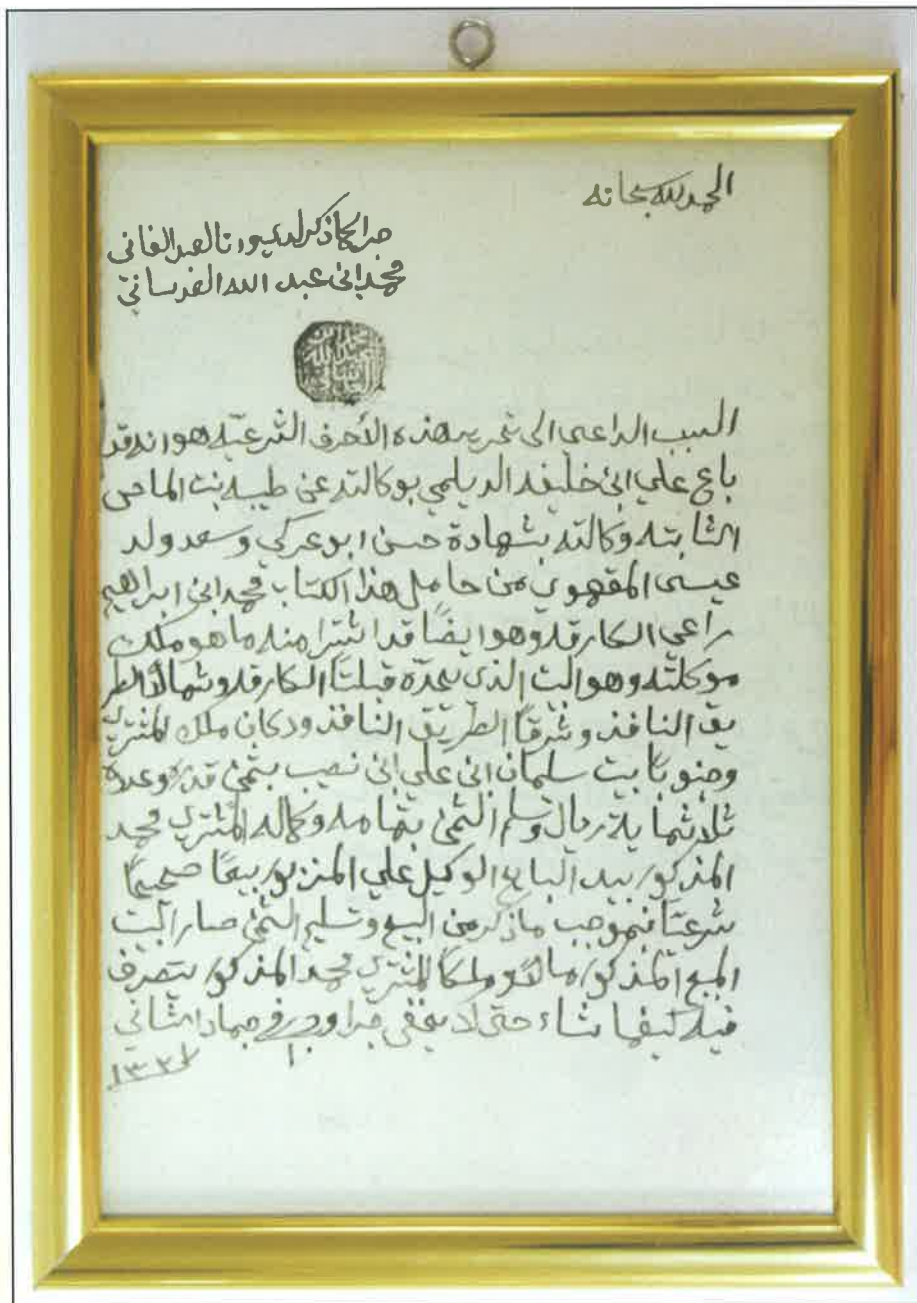 الحمد لله سبحانه
محمد ابن عبد الله
السبب الداعي الى تحرير هذه الأحرف الشرعيه هو انه قد
باع علي ابن خليفه الديلمي بوكالته عن طيبه بنت
الثابته وكالته بشهادة حسن ابو عركي وسعد ولد
عيسى المقهوي من حامل هذا الكتاب محمد ابن ابراهيم
راعي الكارقه وهو ايضًا قد اشترا منه ما هو ملك
موكلته وهو البيت الذي يحدّه قبلتًا الكارقه وشمالًا الطر
يق النافذ وشرقًا الطريق النافذ ودكان ملك المشتري
وجنوبًا بيت سلمان ابن علي ابن نصيب بثمن قدره وعده
ثلاثماية ريال وتسلم الثمن بتمامه وكماله المشتري محمد
المذكور بيد البايع الوكيل علي المزبور بيعًا صحيحًا
شرعيًا فبموجب ما ذكر من البيع وتسليم الثمن صار البيت
المبيع المذكور مالًا وملكًا للمشتري محمد المذكور يتصرف
فيه كيفما شاء حتى لا يخفى جرا وحرر في جماد الثاني